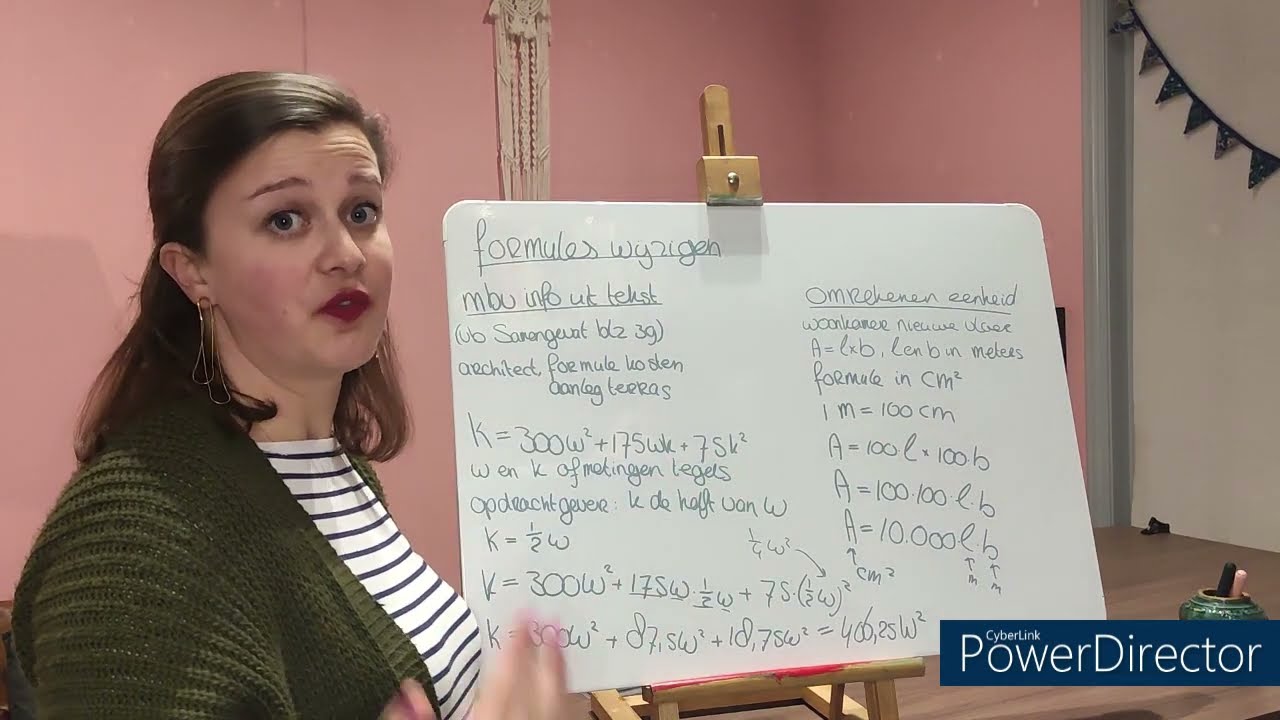 formules wijzigen
mbv info uit tekst
(vb Samengevat blz 39)
architect, formule kosten
aanleg terras
K = 300w² + 175wk + 75k²
w en k afmetingen tegels
opdrachtgever: k de helft van w
k = ½w
¼w²
K = 300w² + 175w · ½w + 75 · (½w)²
K = 300w² + 87,5w² + 18,75w² = 406,25w²
omrekenen eenheid
woonkamer nieuwe vloer
A = l×b, l en b in meters
formule in cm²
1 m = 100 cm
A = 100 l × 100 · b
A = 100 · 100 · l · b
A = 10.000 l · b
cm²
m
m
CyberLink
PowerDirector